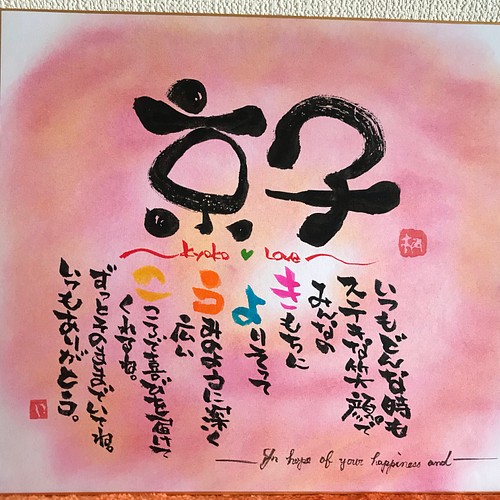 京子
Kyoko ♥ Love
いつもどんな時も
ステキな笑顔で
みんなの
きもちに
よりそって
うみのように深く
広い
こころで喜びを届けて
くれるね。
ずっとそのままでいてね。
いつもありがとう。
In hope of your happiness and